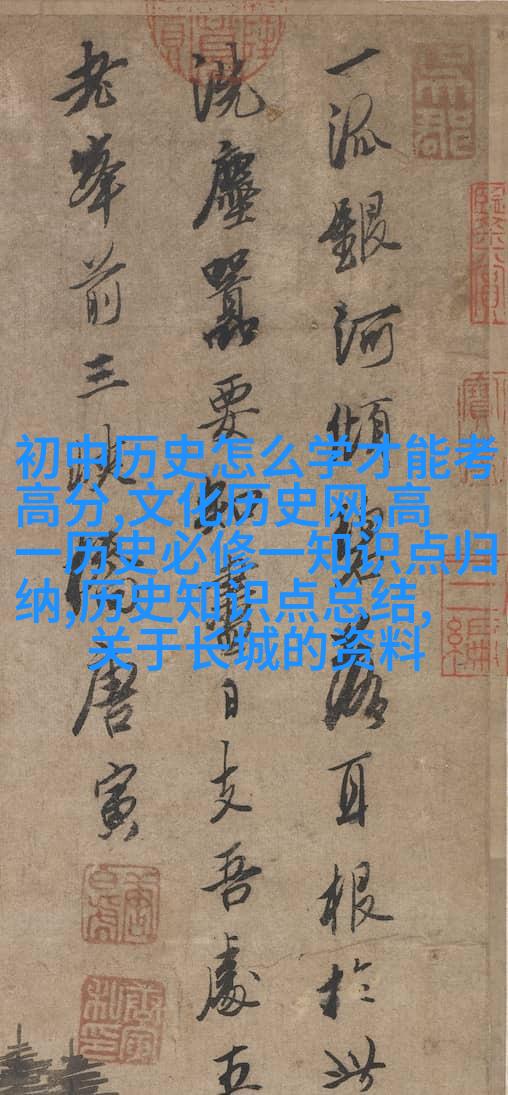 初中历史怎么学才能考
高分,文化历史网,高
一历史必修一知识点归
纳,历史知识点总结,
关于长城的资料
一派銀河傾碧落耳根於此
洗塵囂要知盡日支吾處五
老峯前三峽橋唐寅